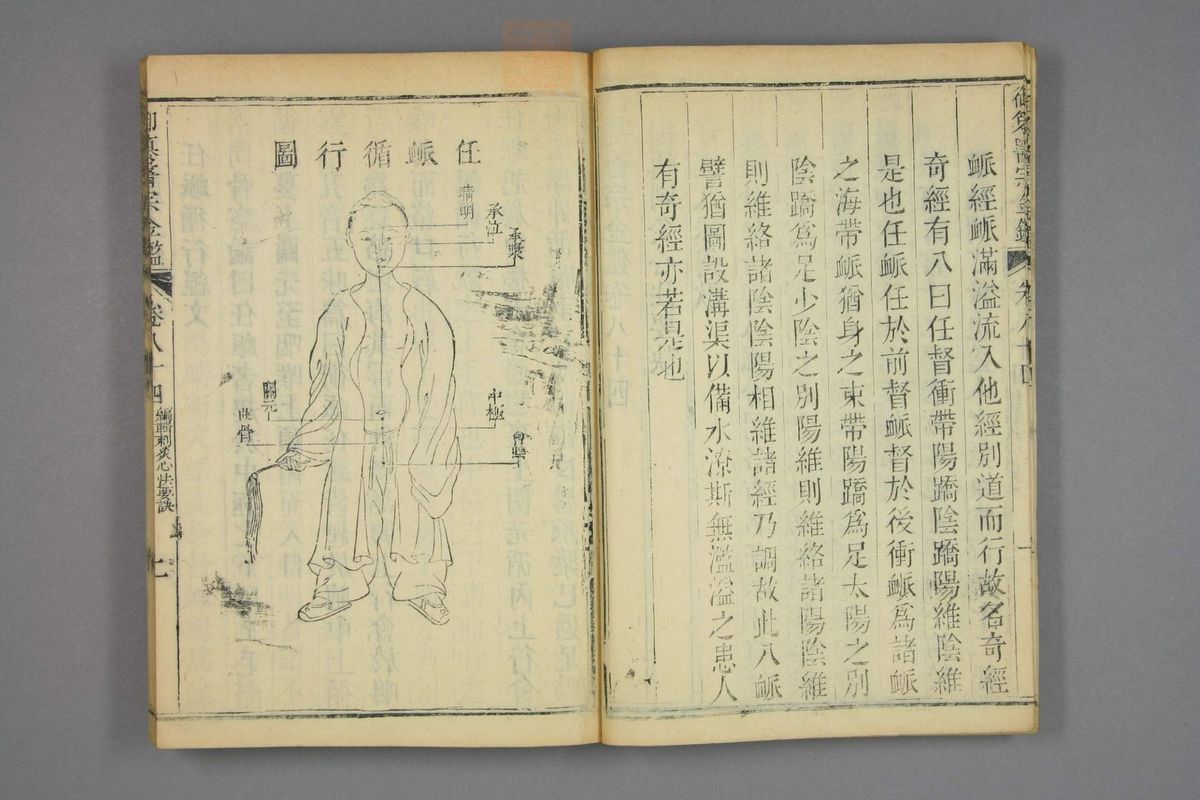 御纂醫宗金鑑
卷八十四
脈經脈滿溢流入他經別道而行故名奇經
奇經有八曰任督衝帶陽蹻陰蹻陽維陰維
是也任脈任於前督脈督於後衝脈爲諸脈
之海帶脈猶身之束帶陽蹻爲足太陽之別
陰蹻爲足少陰之別陽維則維絡諸陽陰維
則維絡諸陰陰陽相維諸經乃調故此八脈
譬猶圖設溝渠以備水潦斯無濫溢之患人
有奇經亦若是也
任脈循行圖
睛明
承泣
承漿
中極
會陰
關元
曲骨
卷八十四
編輯刺灸心法要訣